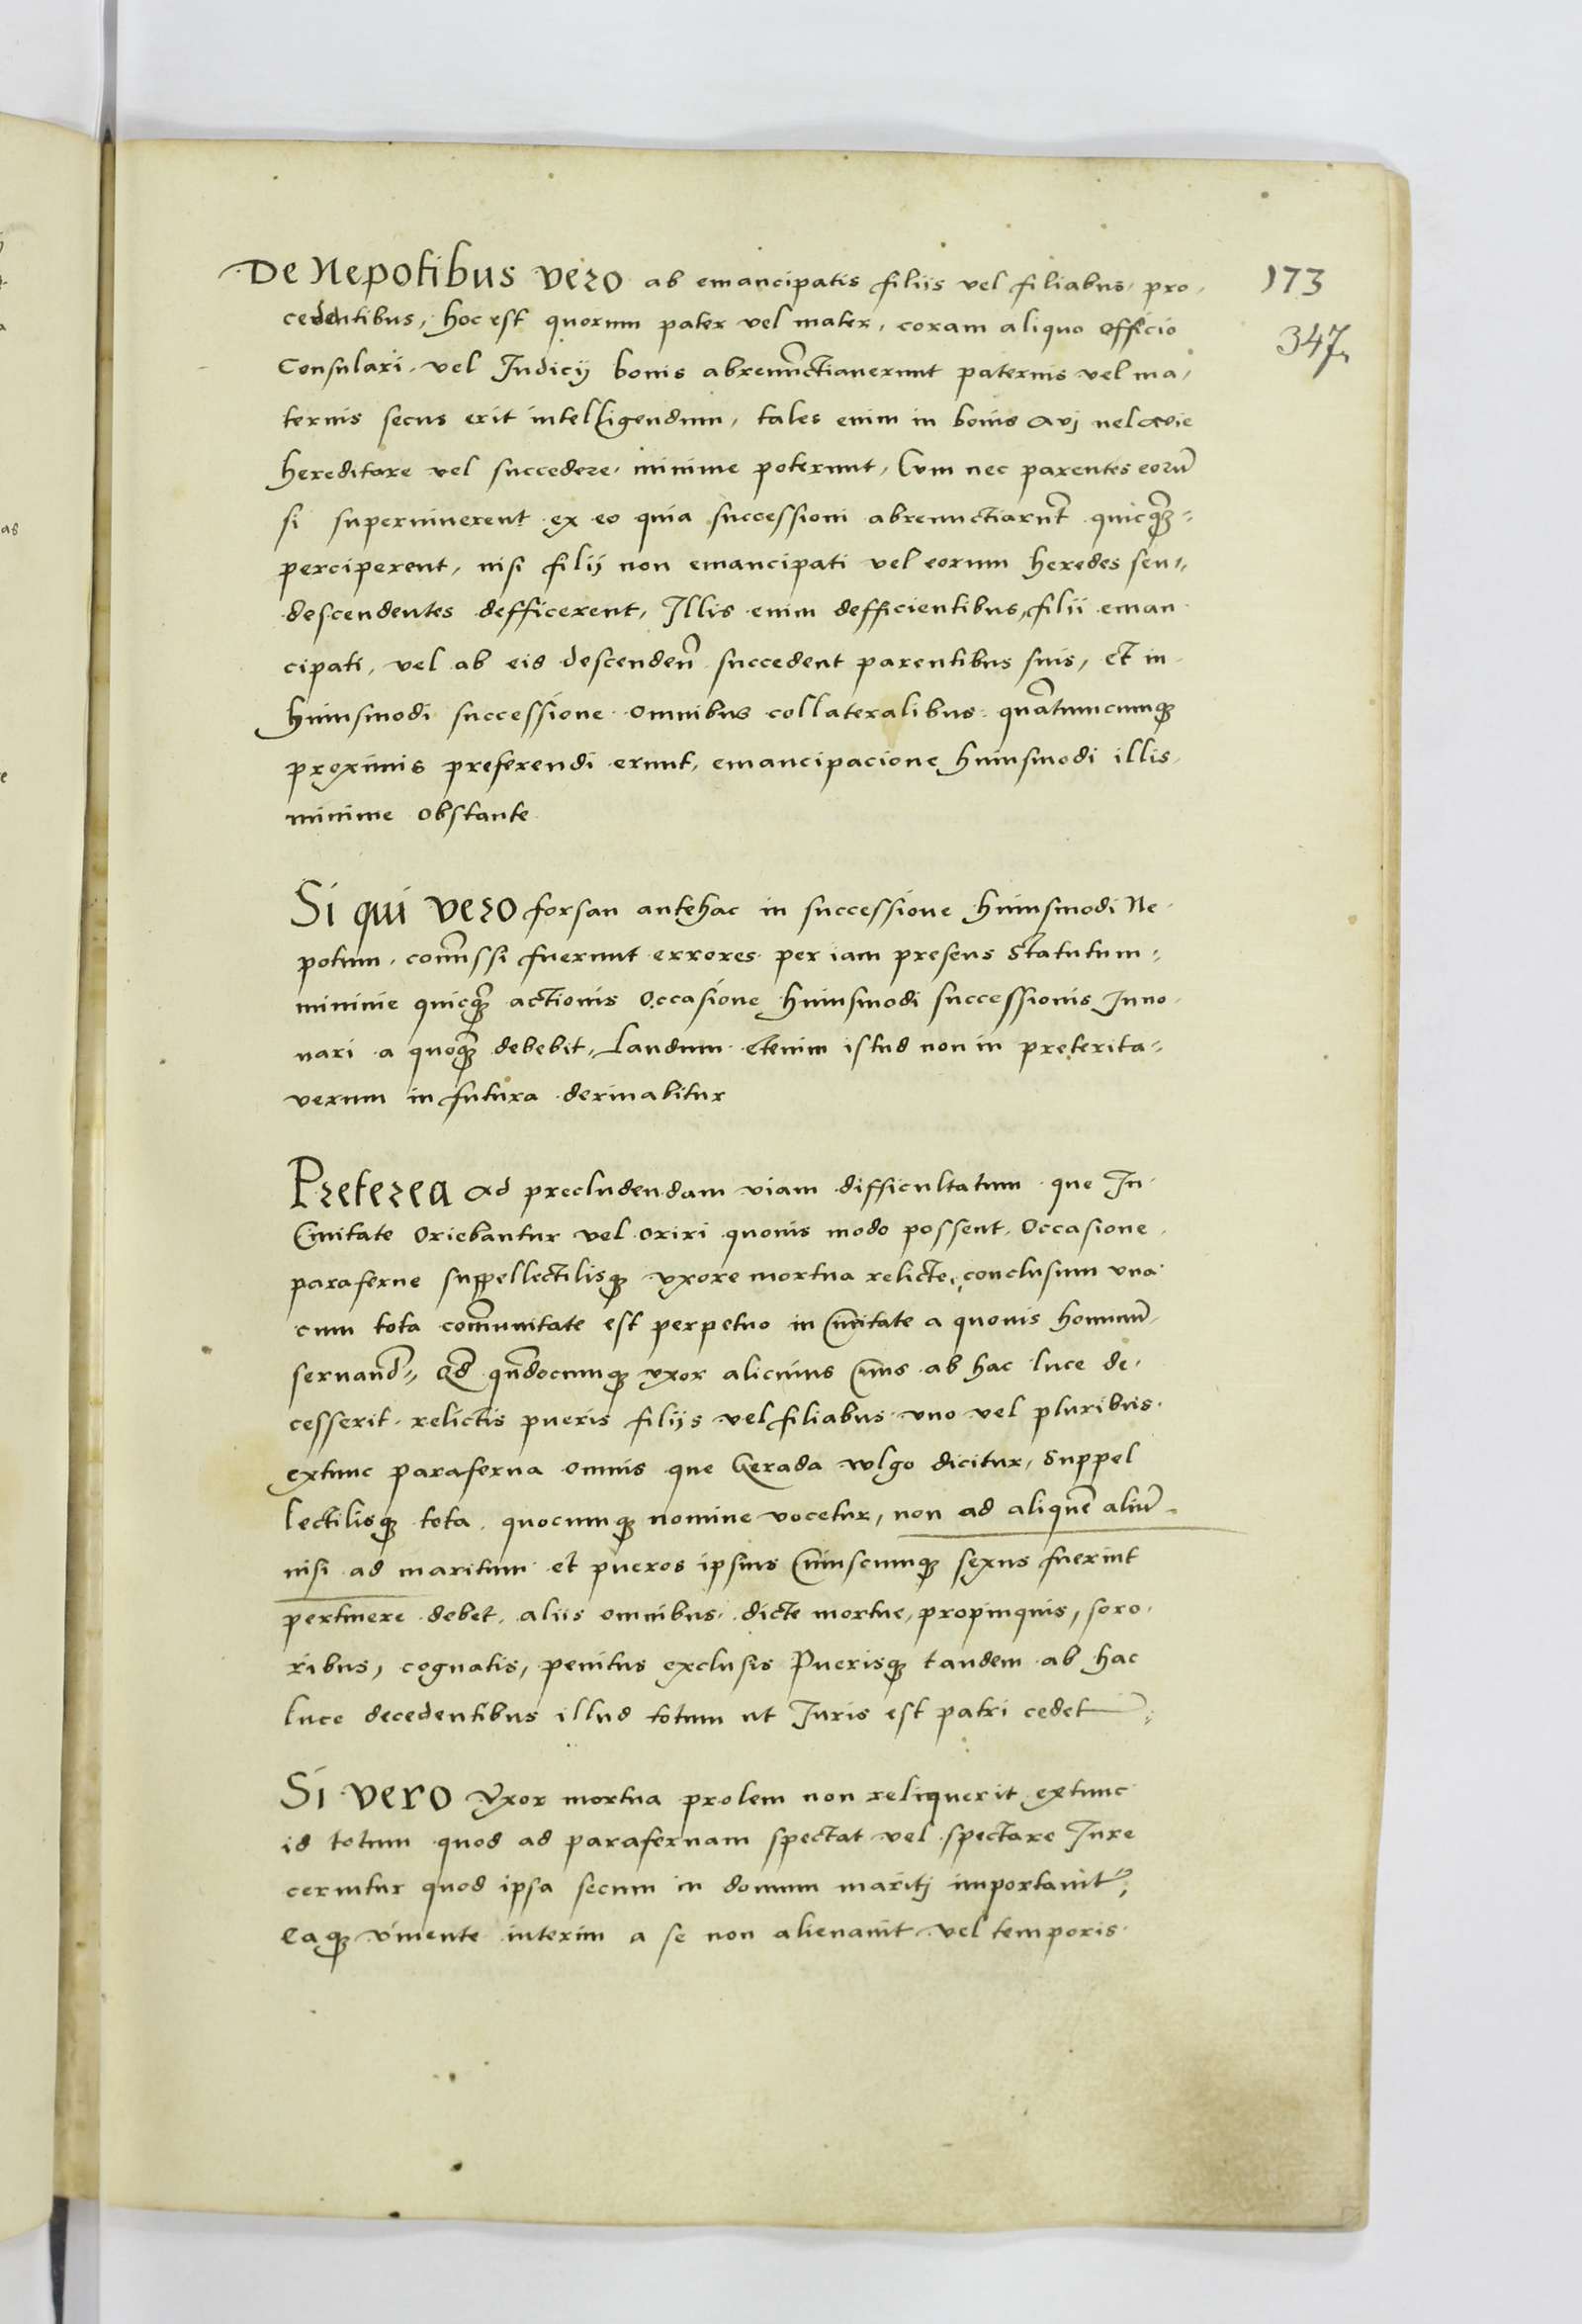 De Nepotibus vero ab emancipatis filiis vel filiabus pro,
173
cedentibus, hoc est quorum pater vel mater, coram aliquo officio
347
Consulari vel Judicij bonis abrenunctiauerunt paternis vel ma,
ternis secus erit intelligendum, tales enim in bonis Auj uel Auie
hereditare vel succedere minime poterunt, Cum nec parentes eorū
si superuiuerent ex eo quia successioni abrenunctiarūt quicqȝ
perciperent, nisi filij non emancipati vel eorum heredes seu
descendentes defficerent, Illis enim defficientibus, filii eman
cipati, vel ab eis descendeñ succedent parentibus suis, et in
huiusmodi successione omnibus collateralibus quātumcumqȝ
proximis preferendi erunt, emancipacione huiusmodi illis
minime obstante
Si qui vero forsan antehac in successione huiusmodi Ne
potum comissi fuerunt errores per iam presens Statutum
minime quicqȝ actionis Occasione huiusmodi successionis Inno
uari a quoqȝ debebit, Laudum etenim istud non in preterita
verum in futura deriuabitur
Preterea ad precludendam viam difficultatum que In
Ciuitate Oriebantur vel oriri quouis modo possent Occasione
paraferne suppellectilisqȝ vxore mortua relicte, conclusum vna
cum tota comunitate est perpetuo in Ciuitate a quouis hominū
seruand̄, Qd̄ qn̄documqȝ vxor alicuius Ciuis ab hac luce de,
cesserit relictis pueris filijs vel filiabus vno vel pluribus
extunc paraferna omnis que Gerada wlgo dicitur, Suppel
lectilisqȝ tota quocumqȝ nomine vocetur, non ad aliquē aliū
nisi ad maritum et pueros ipsius Cuiuscumqȝ sexus fuerint
pertinere debet, aliis omnibus dicte mortue, propinquis, soro
ribus, cognatis, penitus exclusis Puerisqȝ tandem ab hac
luce decedentibus illud totum ut Juris est patri cedet
Si vero Vxor mortua prolem non reliquerit extunc
id totum quod ad parafernam spectat vel spectare Jure
cernitur quod ipsa secum in domum maritj importauit,
Eaqȝ viuente interim a se non alienauit vel temporis